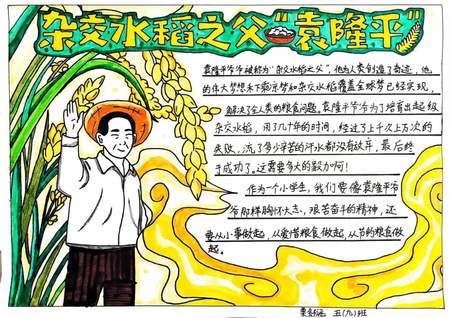 杂交水稻之父"袁隆平"
袁隆平爷爷被称为"杂交水稻之父"，他为人类创造了奇迹，他
的伟大梦想禾下乘凉梦和杂交水稻覆盖全球梦已经实现，
解决了全人类的粮食问题。袁隆平爷爷为了培育出超级
杂交水稻，用了几十年的时间，经过了上千次上万次的
失败，流了多少辛苦的汗水都没有放弃，最后终
于成功了。这需要多大的毅力啊！
作为一个小学生，我们要像袁隆平爷
爷那样胸怀大志，艰苦奋斗的精神，还
要从小事做起，从爱惜粮食做起，从节约粮食做
起。
五(九)班